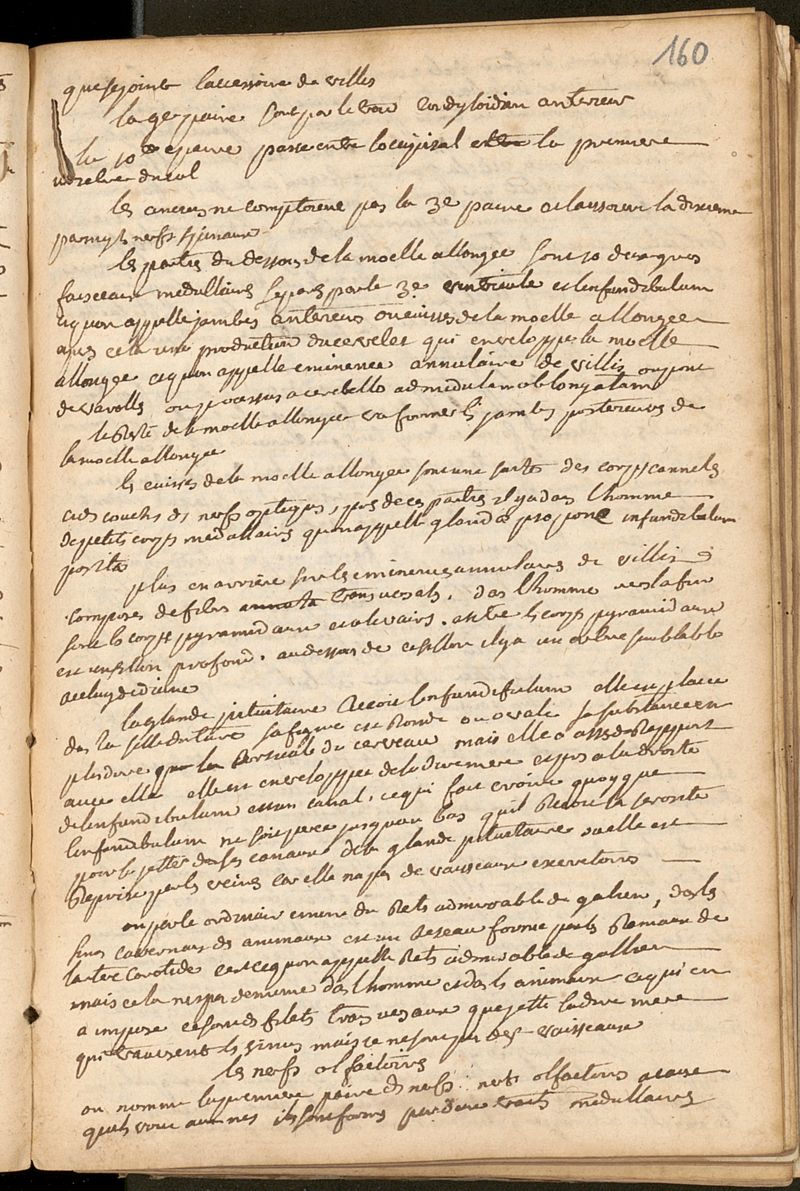 160
que se joint l'accessoire de villis
la 9e paire sort par le trou condyloidien anterieur
la 10e paire passe entre l'occipital et la premiere
vertebre du col
les anciens ne comptoient pas la 3e paire et laissoient la dixieme
parmy ls nerfs spinaux
les parties du dessous de la moelle allongee sont 1o deux gros
faisceaux medullaires separes par le 3e ventricule et l'infundibulum
ce qu'on appelle jambes anterieurs ou cuisses de la moelle allongee
apres cela une production du cervelet qui enveloppe la moelle
allongee ce qu'on appelle eminence annulaire de villis ou pont
de varolle ou processus a cerebello ad medulam oblongatam
le reste de la moelle allongee va former ls jambes posterieures de
la moelle allongee
les cuisses de la moelle allongee sont une suite des corps cannelés
et des couches ds nerfs optiques, pres de ces parties il y a dans l'homme
de petits corps medullaires qu'on appelle glandes pro pone infundibulum
posita
plus en arriere sur ls eminences annulaires de villis
composes de fibres transversals. dans l'homme vers la fin
sont ls corps pyramidaux et olivaires. entre ls corps pyramidaux
est un sillon profond. au dessous de ce sillon il y a un autre semblable
la glande pituitaire recoit l'infundibulum elle est placee
dans la selle du turc sa figure est ronde ou ovale sa substance est
plus dure que la corticale du cerveau mais elle a asses de rapport
avec elle elle est enveloppee de la dure mere
l'infundibulum est un canal. ce qui fait croire quoyque
l'infundibulum ne soit perce jusqu'en bas qu'il recoit la serosite
pour la jetter dans ls canaux de la glande pituitaire ou elle est
reprise par ls veines car elle n'a pas de vaisseaux excretoires
on parle ordinairement du rets admirable de galien, dans ls
sinus caverneux ds animaux est un reseau forme par ls rameaux de
l'artere carotide c'est ce qu'on appelle rets admirable de gallien
mais cela n'est pas de meme dans l'homme et dans ls animaux ce qui en
a impose ce sont ds filets transversaux que jette la dure mere
qui traversent ls sinus mais ce ne sont pas des vaisseaux
les nerfs olfactoires
on nomme la premiere paire ds nerfs: nerfs olfactoires a cause
quils vont au nes ils sont formes par deux traits medullaires